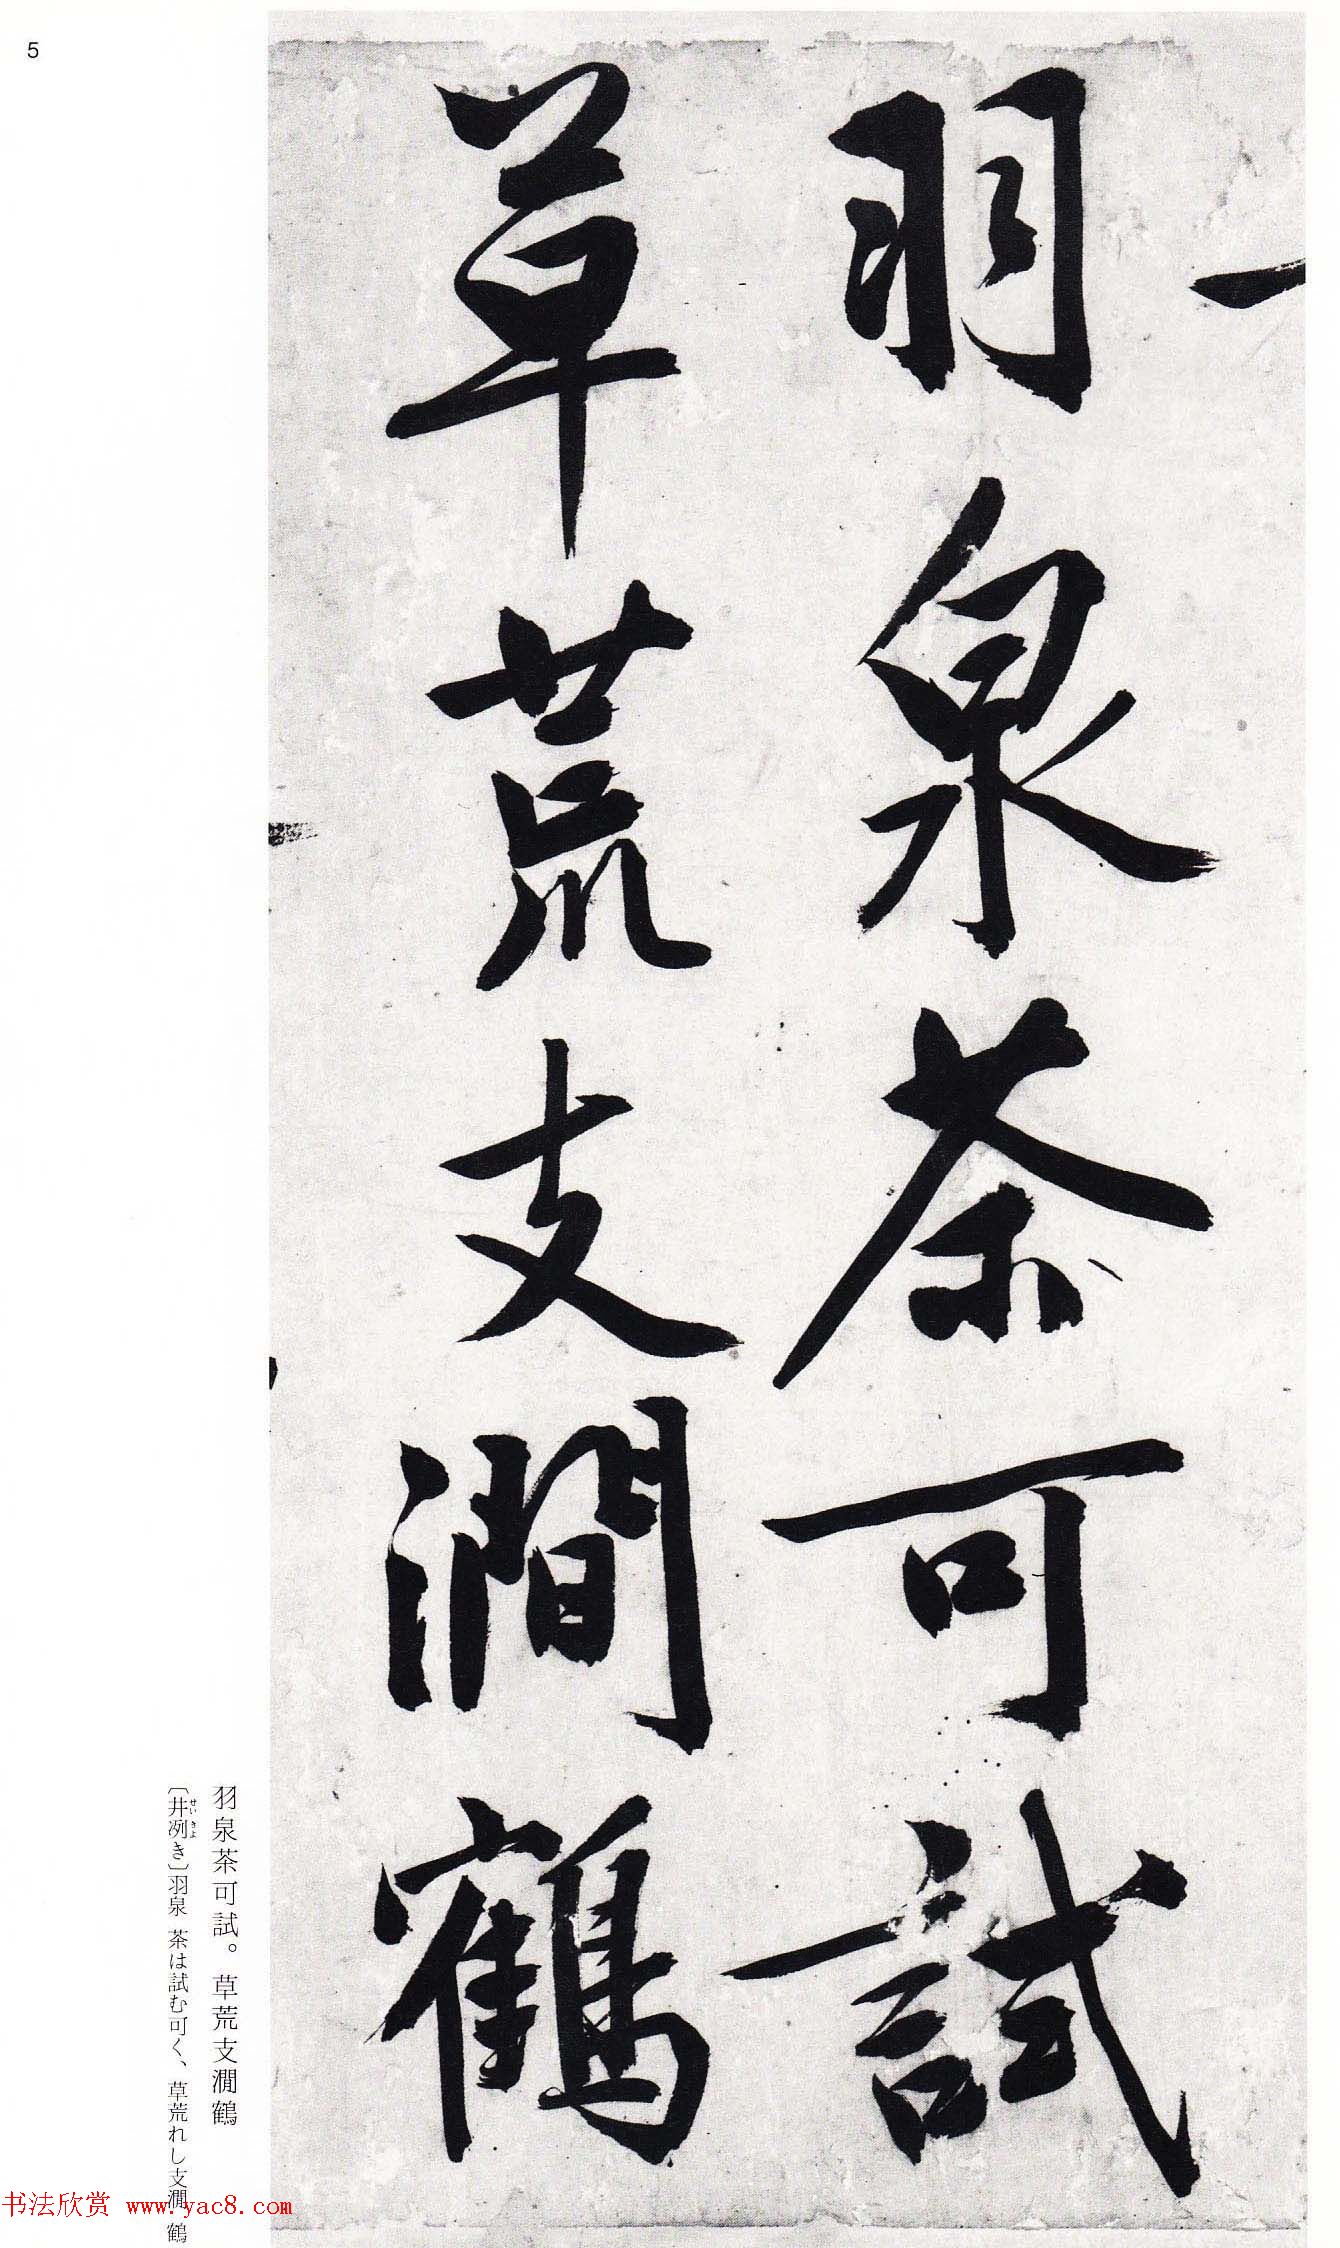 5
羽泉茶可試
草荒支澗鶴
羽泉茶可試。草荒支澗鶴
〔井冽き〕羽泉 茶は試む可く、草荒れし支澗 鶴
せい きよ
书法欣赏 www.yac8.com